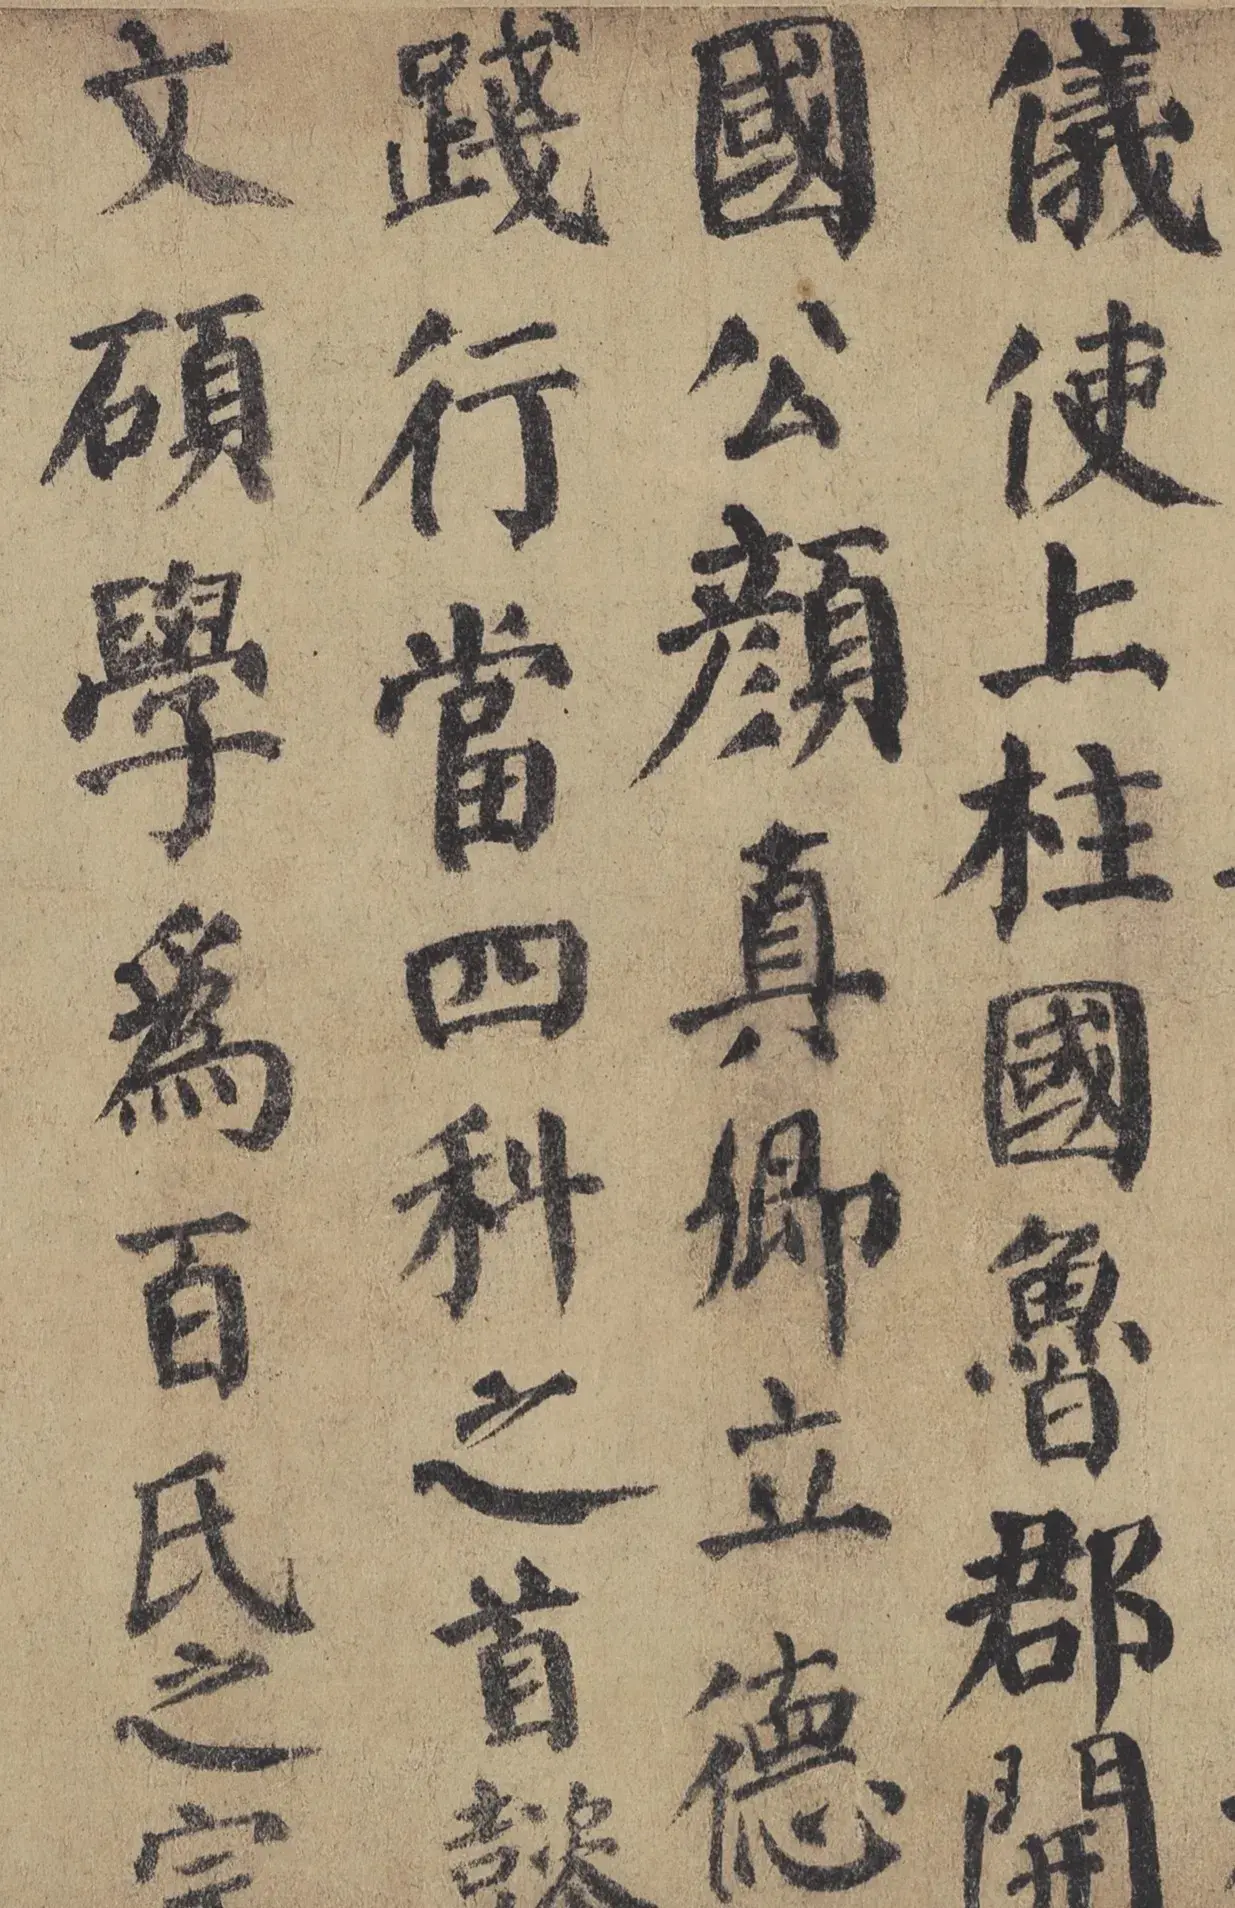 儀使上柱國魯郡開
國公顏真卿立德
踐行當四科之首懿
文碩學爲百氏之宗